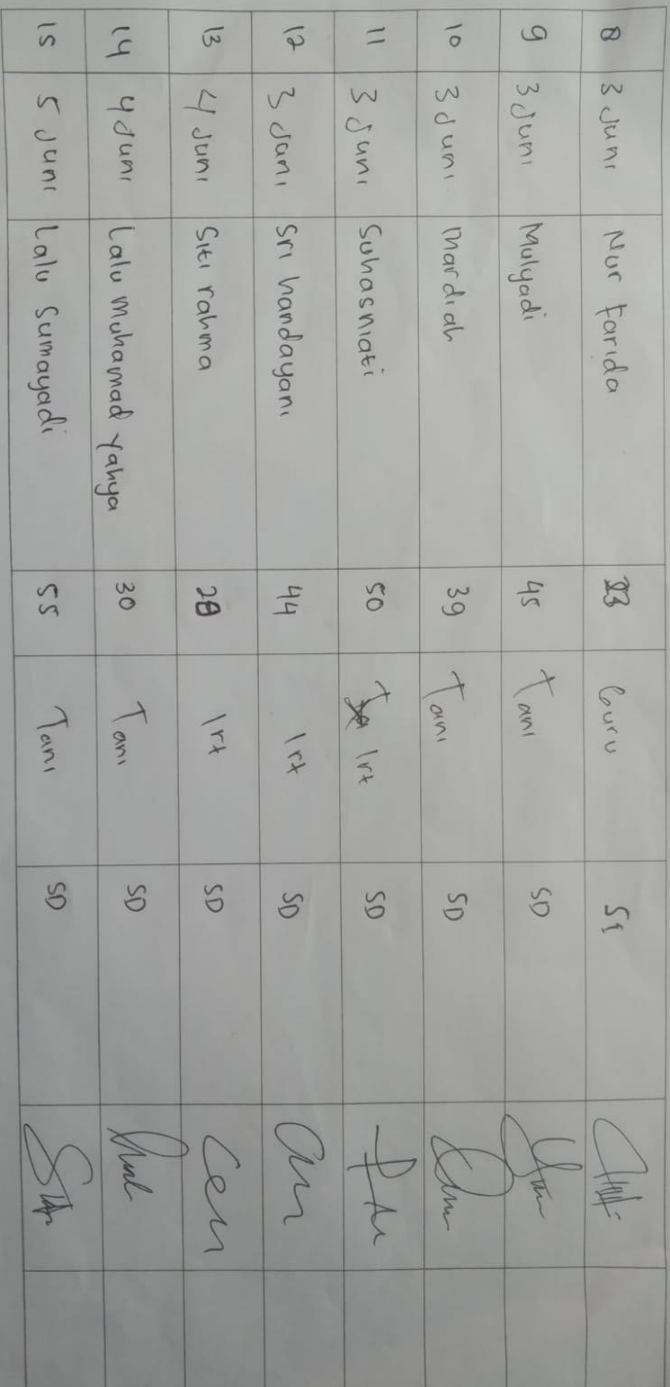 8 3 Juni Nur Farida 23 Guru S1
9 3 Juni Mulyadi 45 Tani SD
10 3 Juni Mardiah 39 Tani SD
11 3 Juni Suhasniati 50 Irt SD
12 3 Juni Sri handayani 44 Irt SD
13 4 Juni Siti rahma 28 Irt SD
14 4 Juni Lalu Muhamad Yahya 30 Tani SD
15 5 Juni Lalu Sumayadi 55 Tani SD